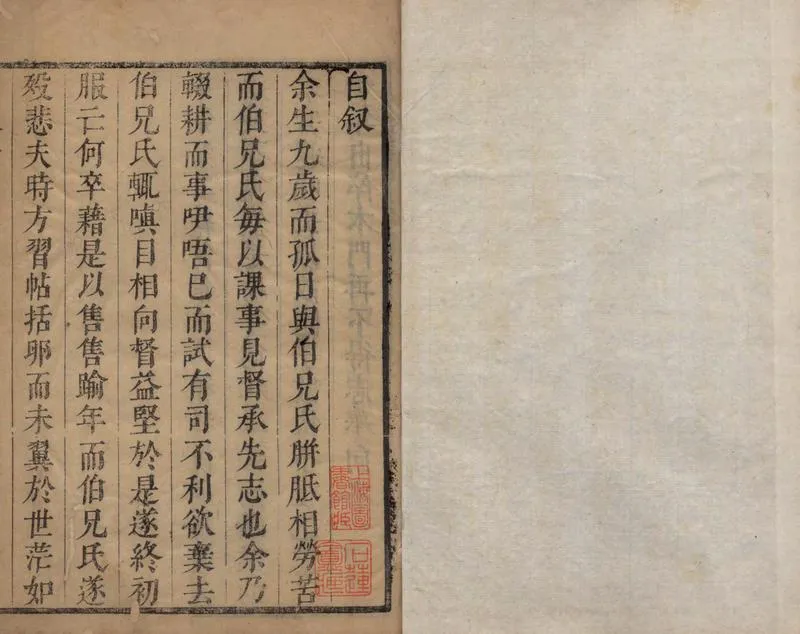 自叙
余生九歲而孤日與伯兄氏胼胝相勞苦
而伯兄氏每以課事見督承先志也余乃
輟耕而事咿唔已而試有司不利欲棄去
伯兄氏輒嗔目相向督益堅於是遂終初
服亡何卒藉是以售售踰年而伯兄氏遂
歿悲夫時方習帖括卵而未翼於世茫如
上海圖
書館收
石蓮